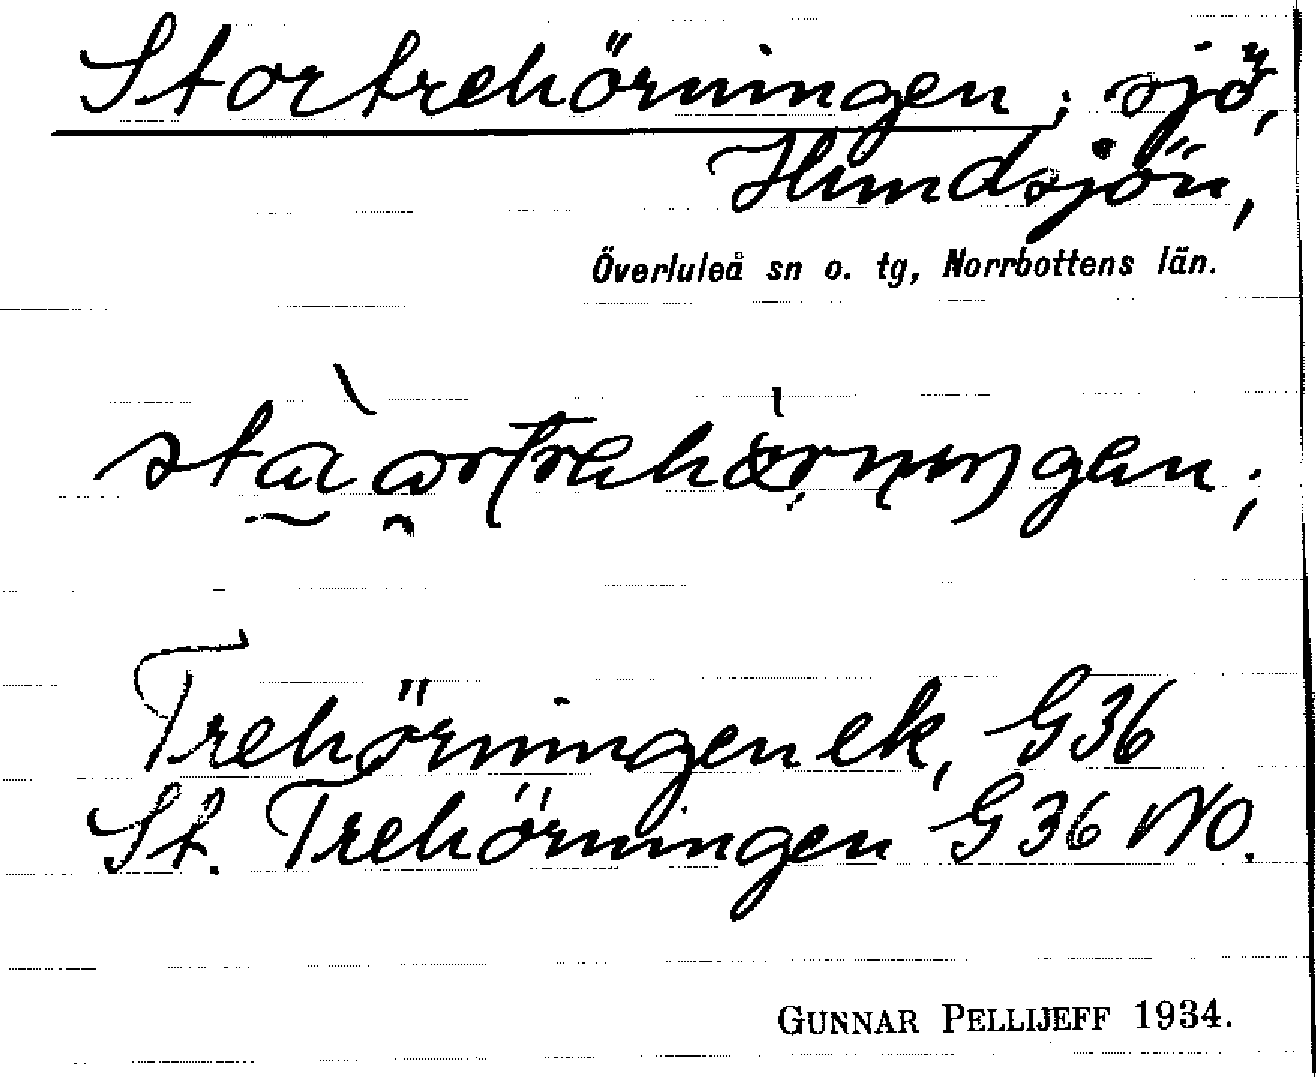 Stortrehörningen; sjö,
Hundsjön,
Överluleå sn o. tg, Norrbottens län.
Trehörningen ek, G36
St. Trehörningen G36 NO.
GUNNAR PELLIJEFF 1934.